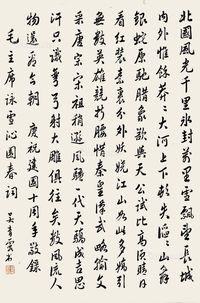 北國風光千里冰封萬里雪飄望長城
内外惟餘莽〻大河上下頓失滔〻山舞
銀蛇原馳臘象欲與天公試比高須晴日
看紅裝素裹分外妖嬈江山如此多嬌引
無數英雄競折腰惜秦皇漢武略輸文
采唐宗宋祖稍遜風騷一代天驕成吉思
汗只識彎弓射大雕俱往矣數風流人
物還看今朝 慶祝建國十周年敬錄
毛主席詠雪沁園春詞